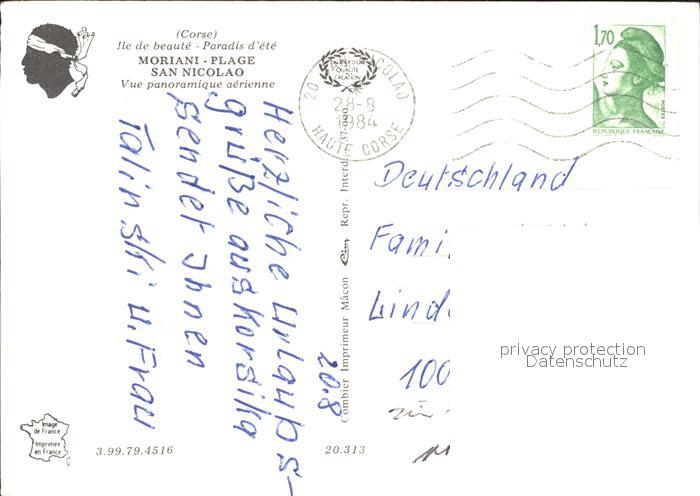 (Corse)
Ile de beauté - Paradis d'été
MORIANI - PLAGE
SAN NICOLAO
Vue panoramique aérienne
QUALITÉ
CRÉATION
28-8
1984
HAUTE CORSE
1,70
POSTES
REPUBLIQUE FRANÇAISE
Herzliche Urlaubs-
grüße aus Korsika
sendet Ihnen
Talinski u. Frau
20.8
Combier Imprimeur Mâcon Cim Repr. Interd.
Deutschland
Fami
Linde
100
privacy protection
Datenschutz
Image
de France
Imprimée
en France
3.99.79.4516
20.313